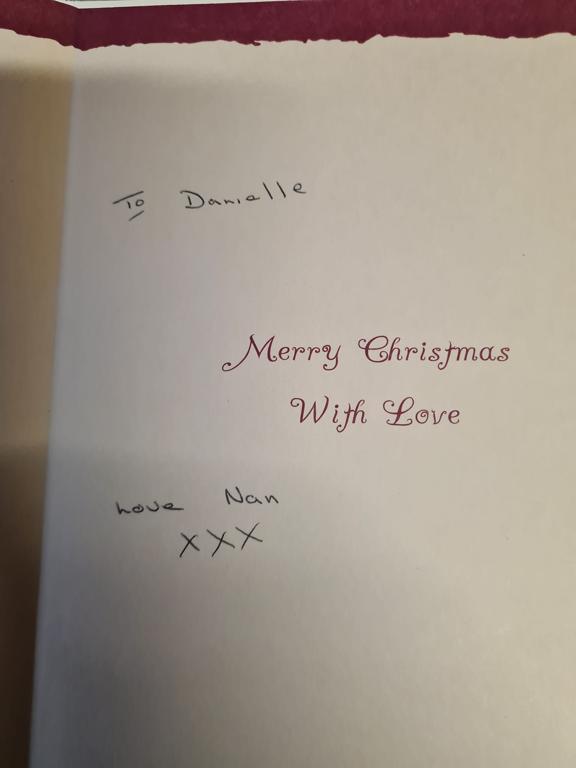 To Danielle
Merry Christmas
With Love
Love Nan
XXX